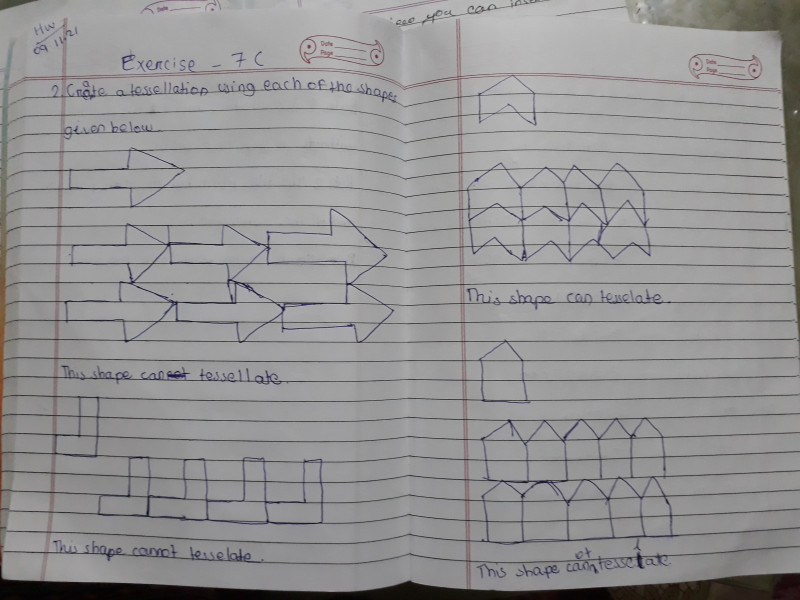 HW
09.11.21
iew you can in
Exercise - 7C
Date
Page
2. Create a tessellation using each of the shapes
given below.
This shape can tessellate.
This shape cannot tesselate.
Date
Page
This shape can tesselate.
This shape cannot tesselate